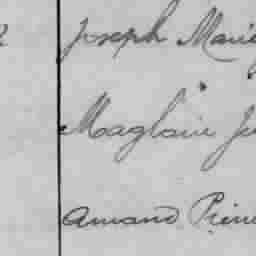 Joseph Marie
Maglaire Ju
Amand Prim